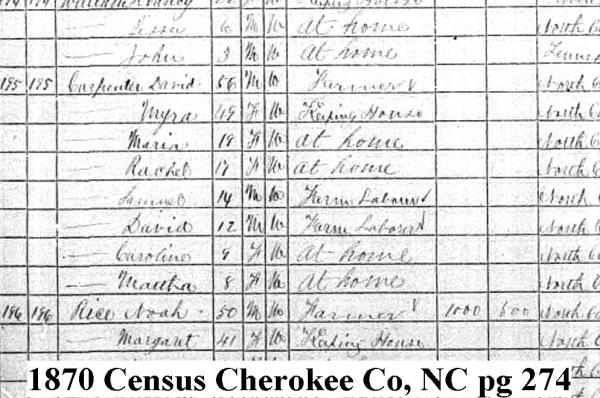 194 194 Nancy Keeping House
6 M W At home North C
— John 3 M W At home Tenne
195 195 Carpenter David 56 M W Farmer North C
— Myra 49 F W Keeping House North Ca
— Maria 19 F W At home North C
— Rachel 17 F W At home North C
— Samuel 14 M W Farm Laborer North C
— David 12 M W Farm Laborer North C
— Caroline 9 F W At home North C
— Martha 8 F W At home North C
196 196 Rice Noah 50 M W Farmer 1000 600 North Ca
— Margaret 41 F W Keeping House North Ca
1870 Census Cherokee Co, NC pg 274